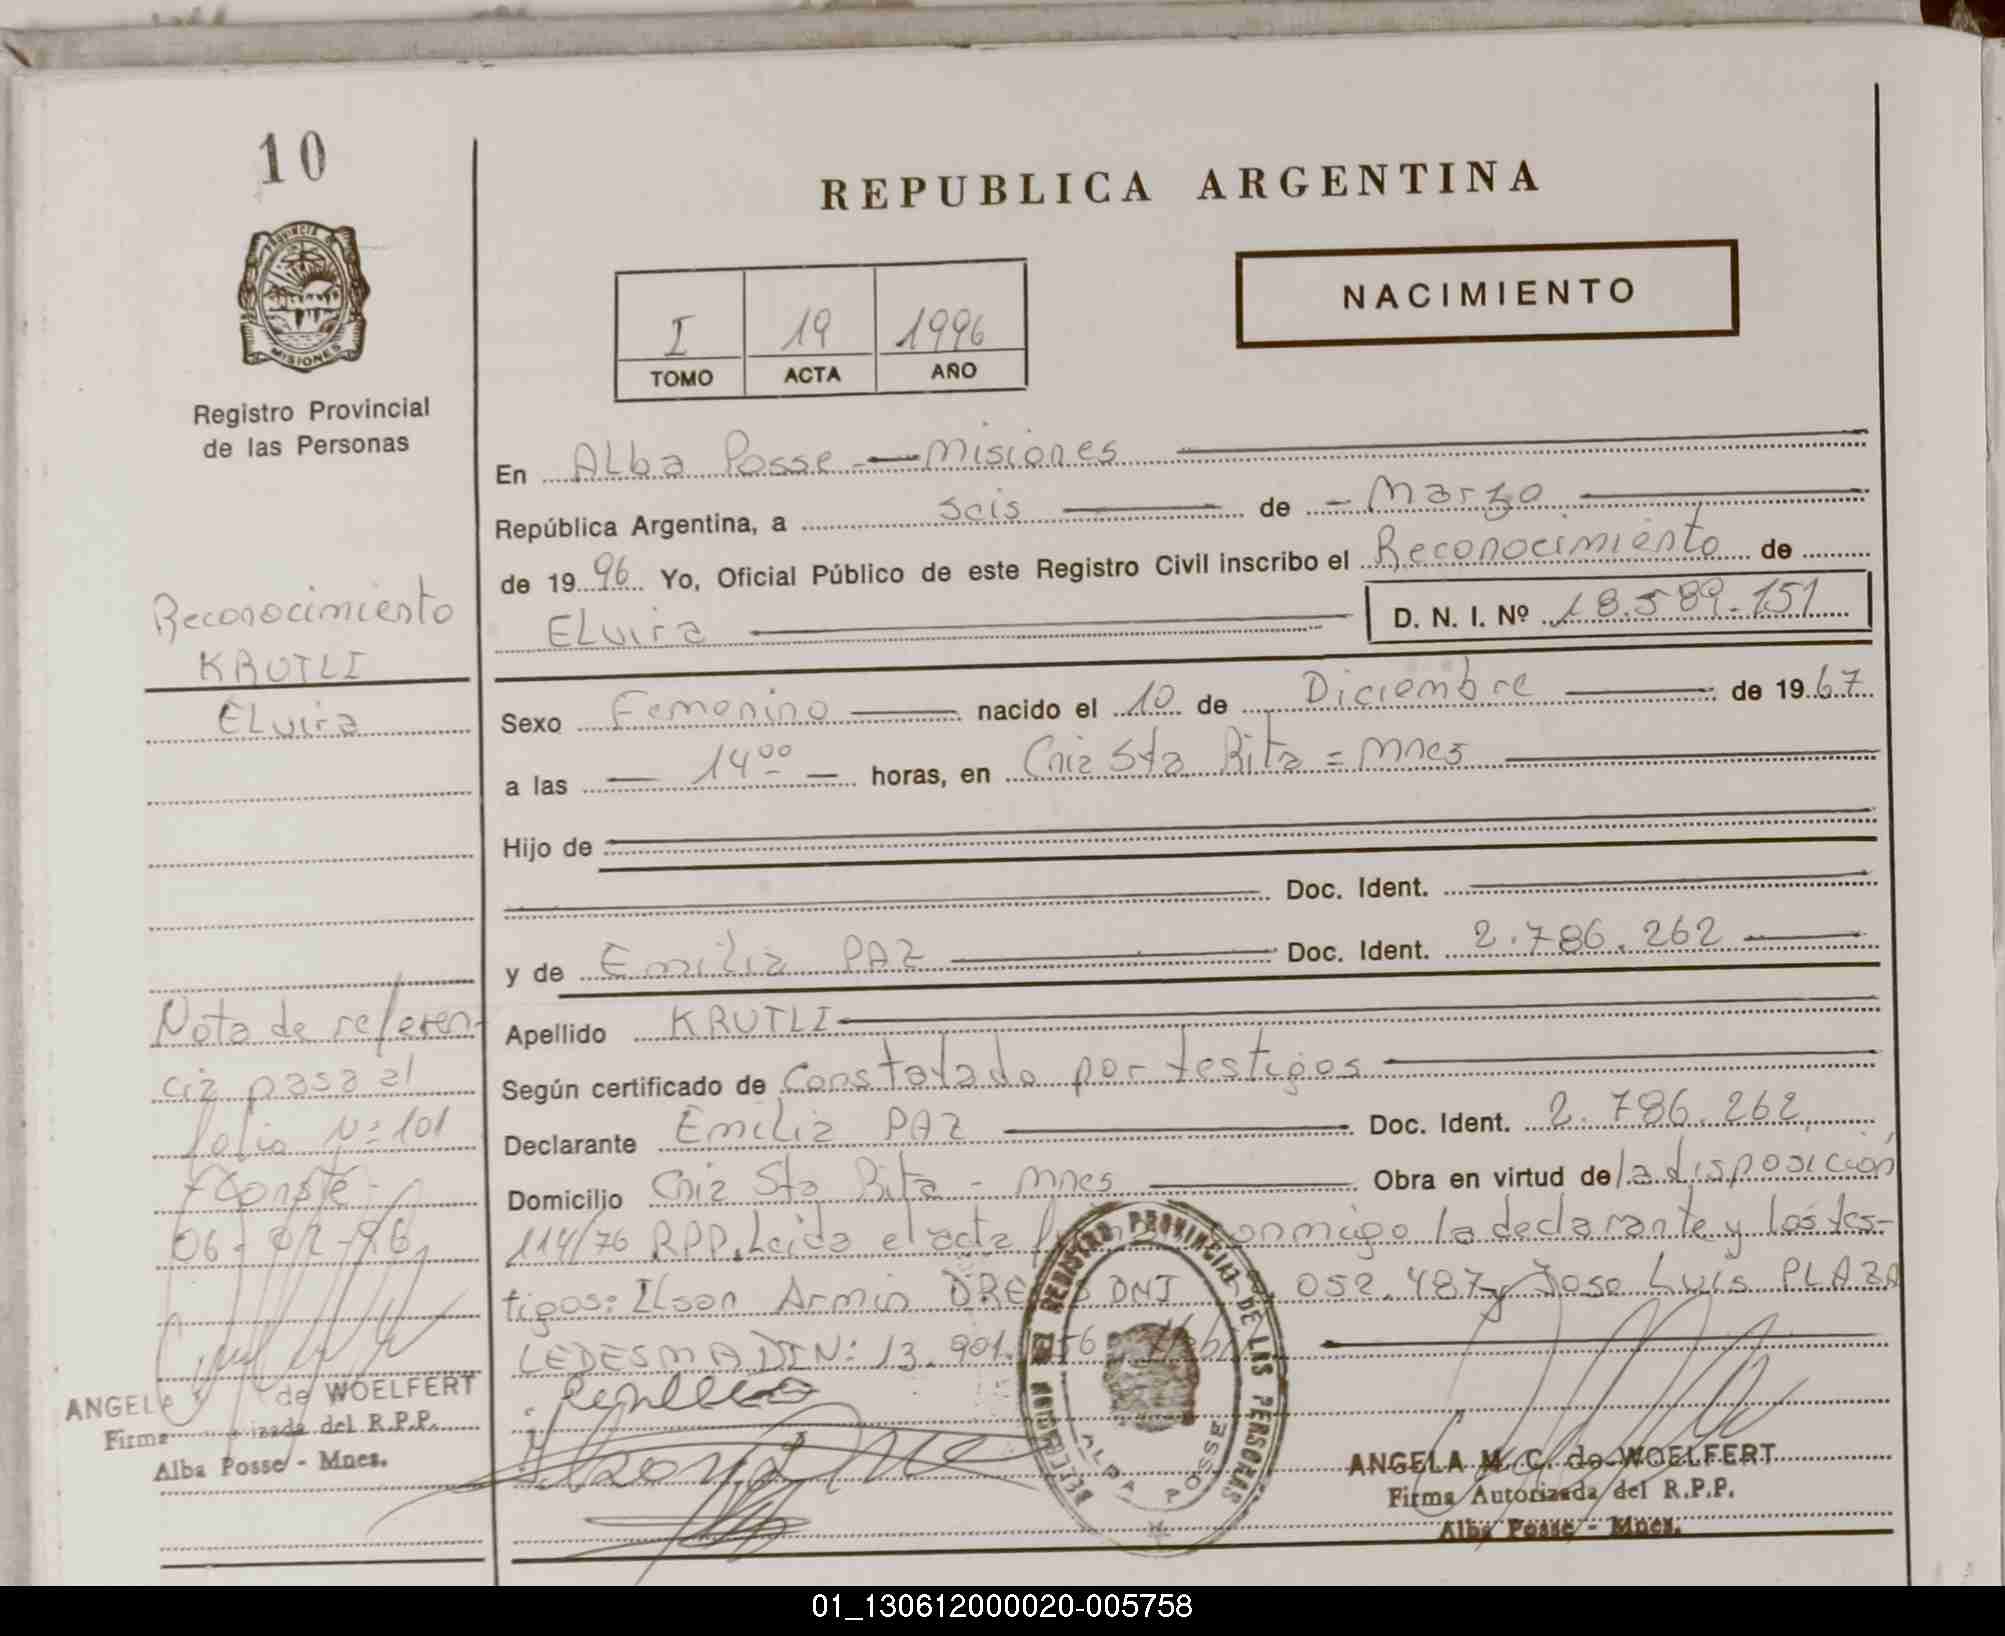 10
REPUBLICA ARGENTINA
PROVINCIA DE
MISIONES
NACIMIENTO
I 19 1996
TOMO ACTA AÑO
Registro Provincial
de las Personas
En Alba Posse - Misiones
República Argentina, a seis de - Marzo
de 1996 Yo, Oficial Público de este Registro Civil inscribo el Reconocimiento de
Elvira D. N. I. Nº 18.589.151
Sexo Femenino nacido el 10 de Diciembre de 1967
a las 14⁰⁰ horas, en Cnia Sta Rita = Mnes
Hijo de
Doc. Ident.
y de Emilia PAZ Doc. Ident. 2.786.262
Apellido KRUTLI
Según certificado de Constatado por testigos
Declarante Emilia PAZ Doc. Ident. 2.786.262
Domicilio Cnia Sta Rita - Mnes Obra en virtud de la disposición
114/76 RPP. Leida el acta conmigo la declarante y los tes-
tigos: Ilson Armin DNI 052.487 y Jose Luis PLAZA
LEDESMA DIN: 13.901.
Reconocimiento
KRUTLI
Elvira
Nota de referen-
cia pasa al
folio Nº 101
Conste -
06- -96
ANGELA de WOELFERT
Firma izada del R.P.P.
Alba Posse - Mnes.
REGISTRO PROVINCIAL DE LAS PERSONAS
ALBA POSSE
ANGELA M. C. de WOELFERT
Firma Autorizada del R.P.P.
Alba Posse - Mnes.
01_130612000020-005758